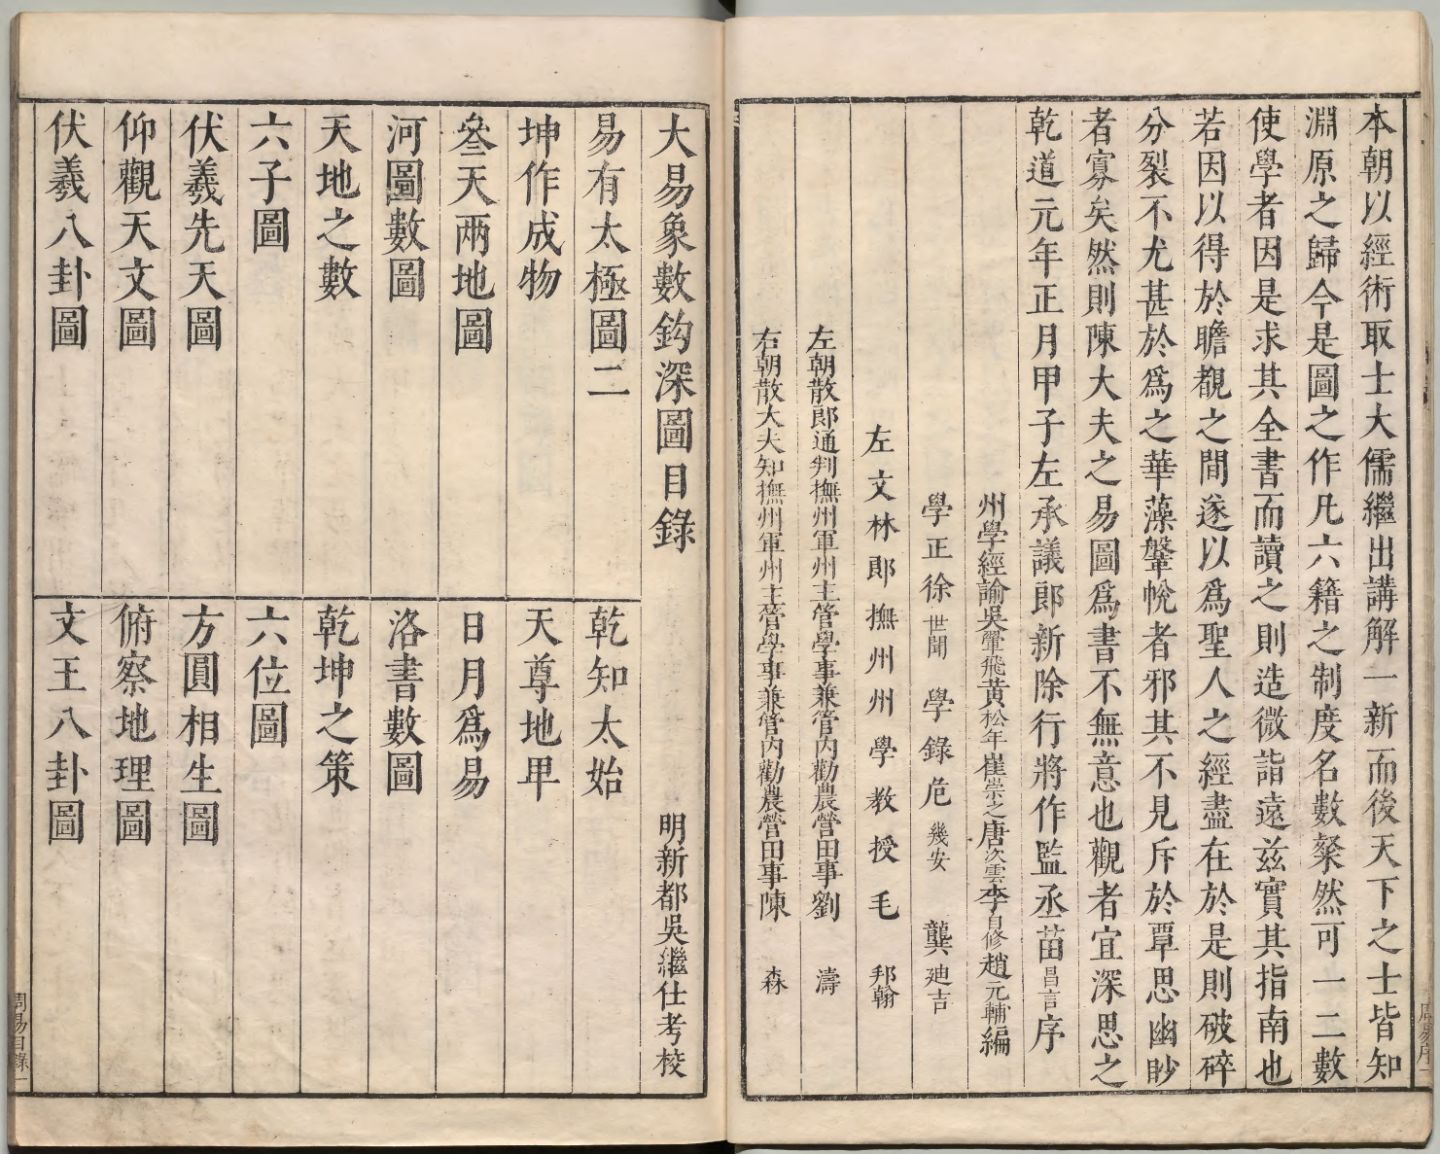 本朝以經術取士大儒繼出講解一新而後天下之士皆知
淵原之歸今是圖之作凡六籍之制度名數粲然可一二數
使學者因是求其全書而讀之則造微詣遠茲實其指南也
若因以得於瞻覩之間遂以爲聖人之經盡在於是則破碎
分裂不尤甚於爲之華藻鞶帨者邪其不見斥於覃思幽眇
者寡矣然則陳大夫之易圖爲書不無意也觀者宜深思之
乾道元年正月甲子左承議郎新除行將作監丞苗昌言序
州學經諭吳翬飛黃松年崔崇之唐次雲李自修趙元輔編
學正徐世聞 學錄危幾安 龔廸吉
左文林郎撫州州學教授毛 邦翰
左朝散郎通判撫州軍州主管學事兼管內勸農營田事劉 濤
右朝散大夫知撫州軍州主管學事兼管內勸農營田事陳 森
周易序一
大易象數鈎深圖目錄
明新都吳繼仕考校
易有太極圖二 乾知太始
坤作成物 天尊地卑
叅天兩地圖 日月爲易
河圖數圖 洛書數圖
天地之數 乾坤之策
六子圖 六位圖
伏羲先天圖 方圓相生圖
仰觀天文圖 俯察地理圖
伏羲八卦圖 文王八卦圖
周易目錄一